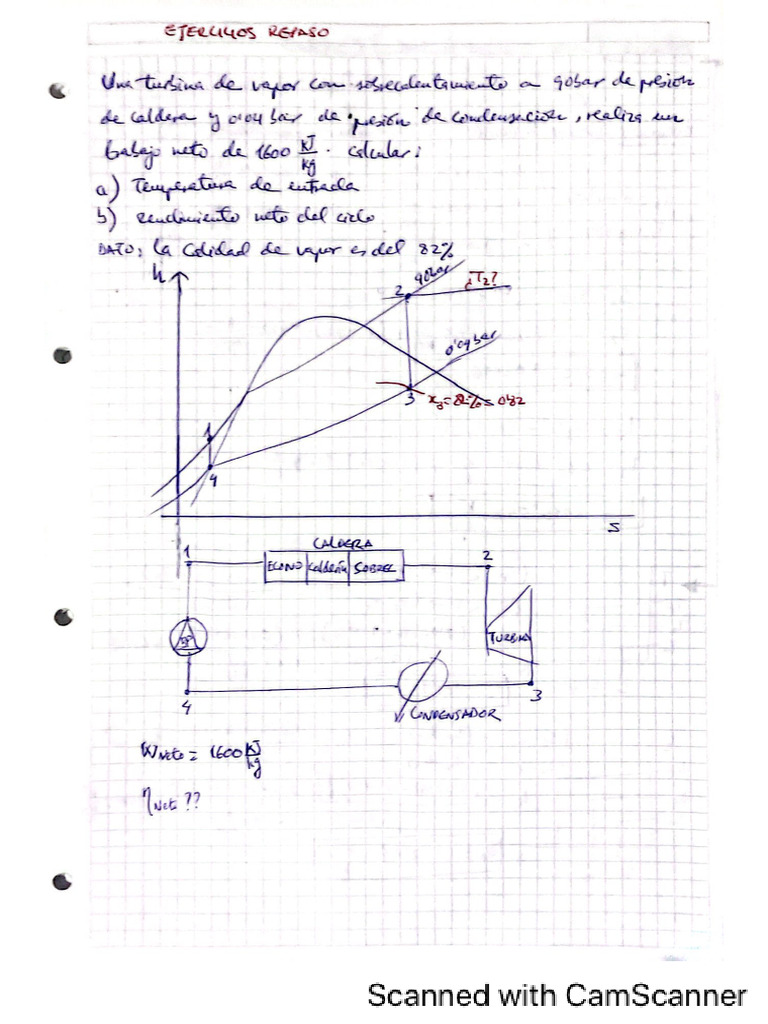 EJERCICIOS REPASO
Una turbina de vapor con sobrecalentamiento a 90bar de presión
de caldera y 0'04 bar de presión de condensación, realiza un
trabajo neto de 1600 KJ/kg. Calcular:
a) Temperatura de entrada
b) rendimiento neto del ciclo
DATO: la calidad de vapor es del 82%
h
2
90bar
¿T2?
0'04bar
3
x3=82%=0'82
1
4
S
CALDERA
1
ECONO
Calderín
SOBREC
2
TURBINA
BP
4
CONDENSADOR
3
WNeto = 1600 KJ/kg
ηNeto ??
Scanned with CamScanner